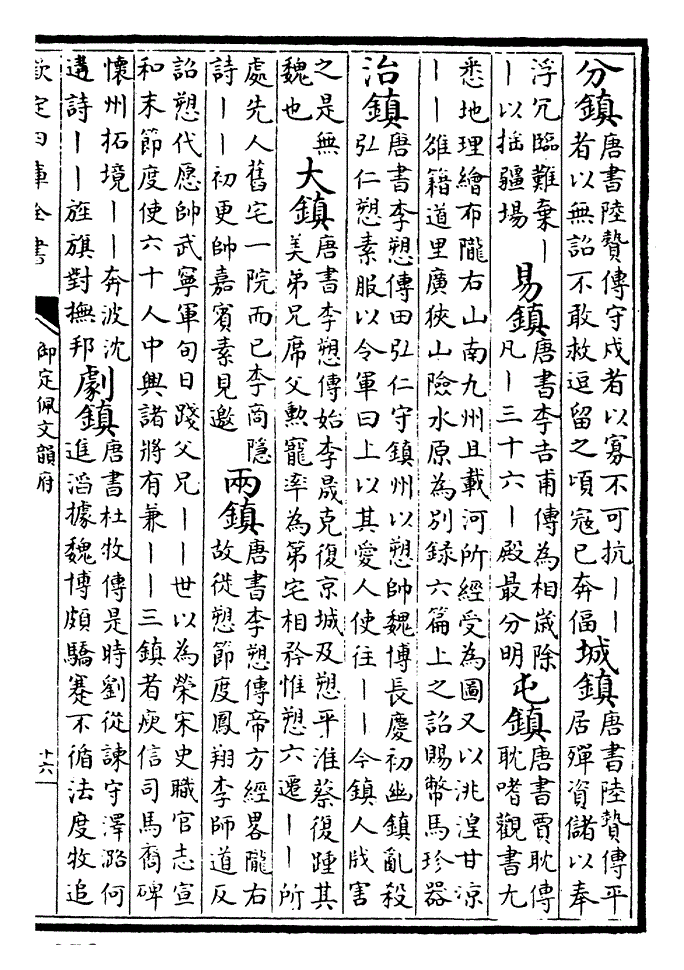 分鎮唐書陸贄傳守戍者以寡不可抗——者以無詔不敢救逗留之頃寇已奔偪城鎮唐書陸贄傳平居殫資儲以奉
浮冗臨難棄——以揺疆場易鎮唐書李吉甫傳為相嵗除凡—三十六—殿最分明屯鎮唐書賈耽傳耽嗜觀書尤
悉地理繪布隴右山南九州且載河所經受為圖又以洮湟甘涼
——雒籍道里廣狹山險水原為別録六篇上之詔賜幣馬珍器
治鎮唐書李愬傳田弘仁守鎮州以愬帥魏博長慶初幽鎮亂殺弘仁愬素服以令軍曰上以其愛人使往——今鎮人戕害
之是無魏也大鎮唐書李愬傳始李晟克復京城及愬平淮蔡復踵其美弟兄席父勲寵率為第宅相矜惟愬六遷——所
處先人舊宅一院而已李商隱詩——初更帥嘉賓素見邀兩鎮唐書李愬傳帝方經畧隴右故徙愬節度鳳翔李師道反
詔愬代愿帥武寧軍旬日踐父兄——世以為榮宋史職官志宣
和末節度使六十人中興諸將有兼——三鎮者庾信司馬裔碑
懷州拓境——奔波沈遘詩——旌旗對撫邦劇鎮唐書杜牧傳是時劉從諫守澤潞何進滔據魏博頗驕蹇不循法度牧追
欽定四庫全書
御定佩文韻府
十六